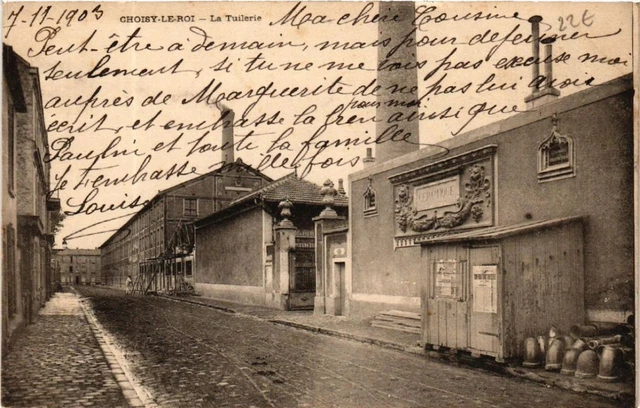 7-11-1903
CHOISY-LE-ROI – La Tuilerie
22€
Ma chère Cousine
Peut-être à demain, mais pour déjeuner
seulement, si tu ne me vois pas excuse moi
auprès de Marguerite de ne pas lui avoir
écrit, et embrasse la bien ainsi que
pour moi
Paulin et toute la famille
Je t'embrasse mille fois
Louise